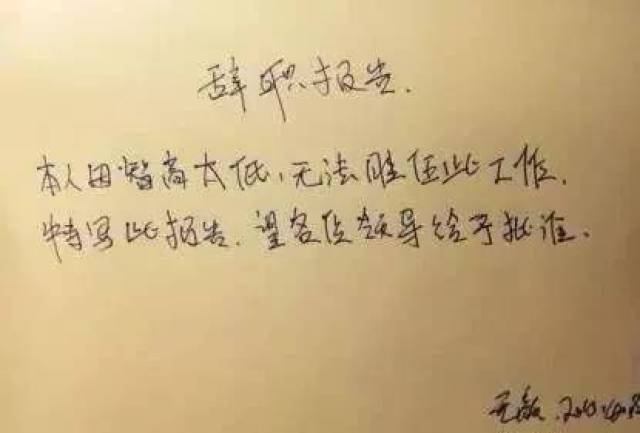 辞职报告.
本人因智商太低、无法胜任此工作.
特写此报告.望各位领导给予批准.